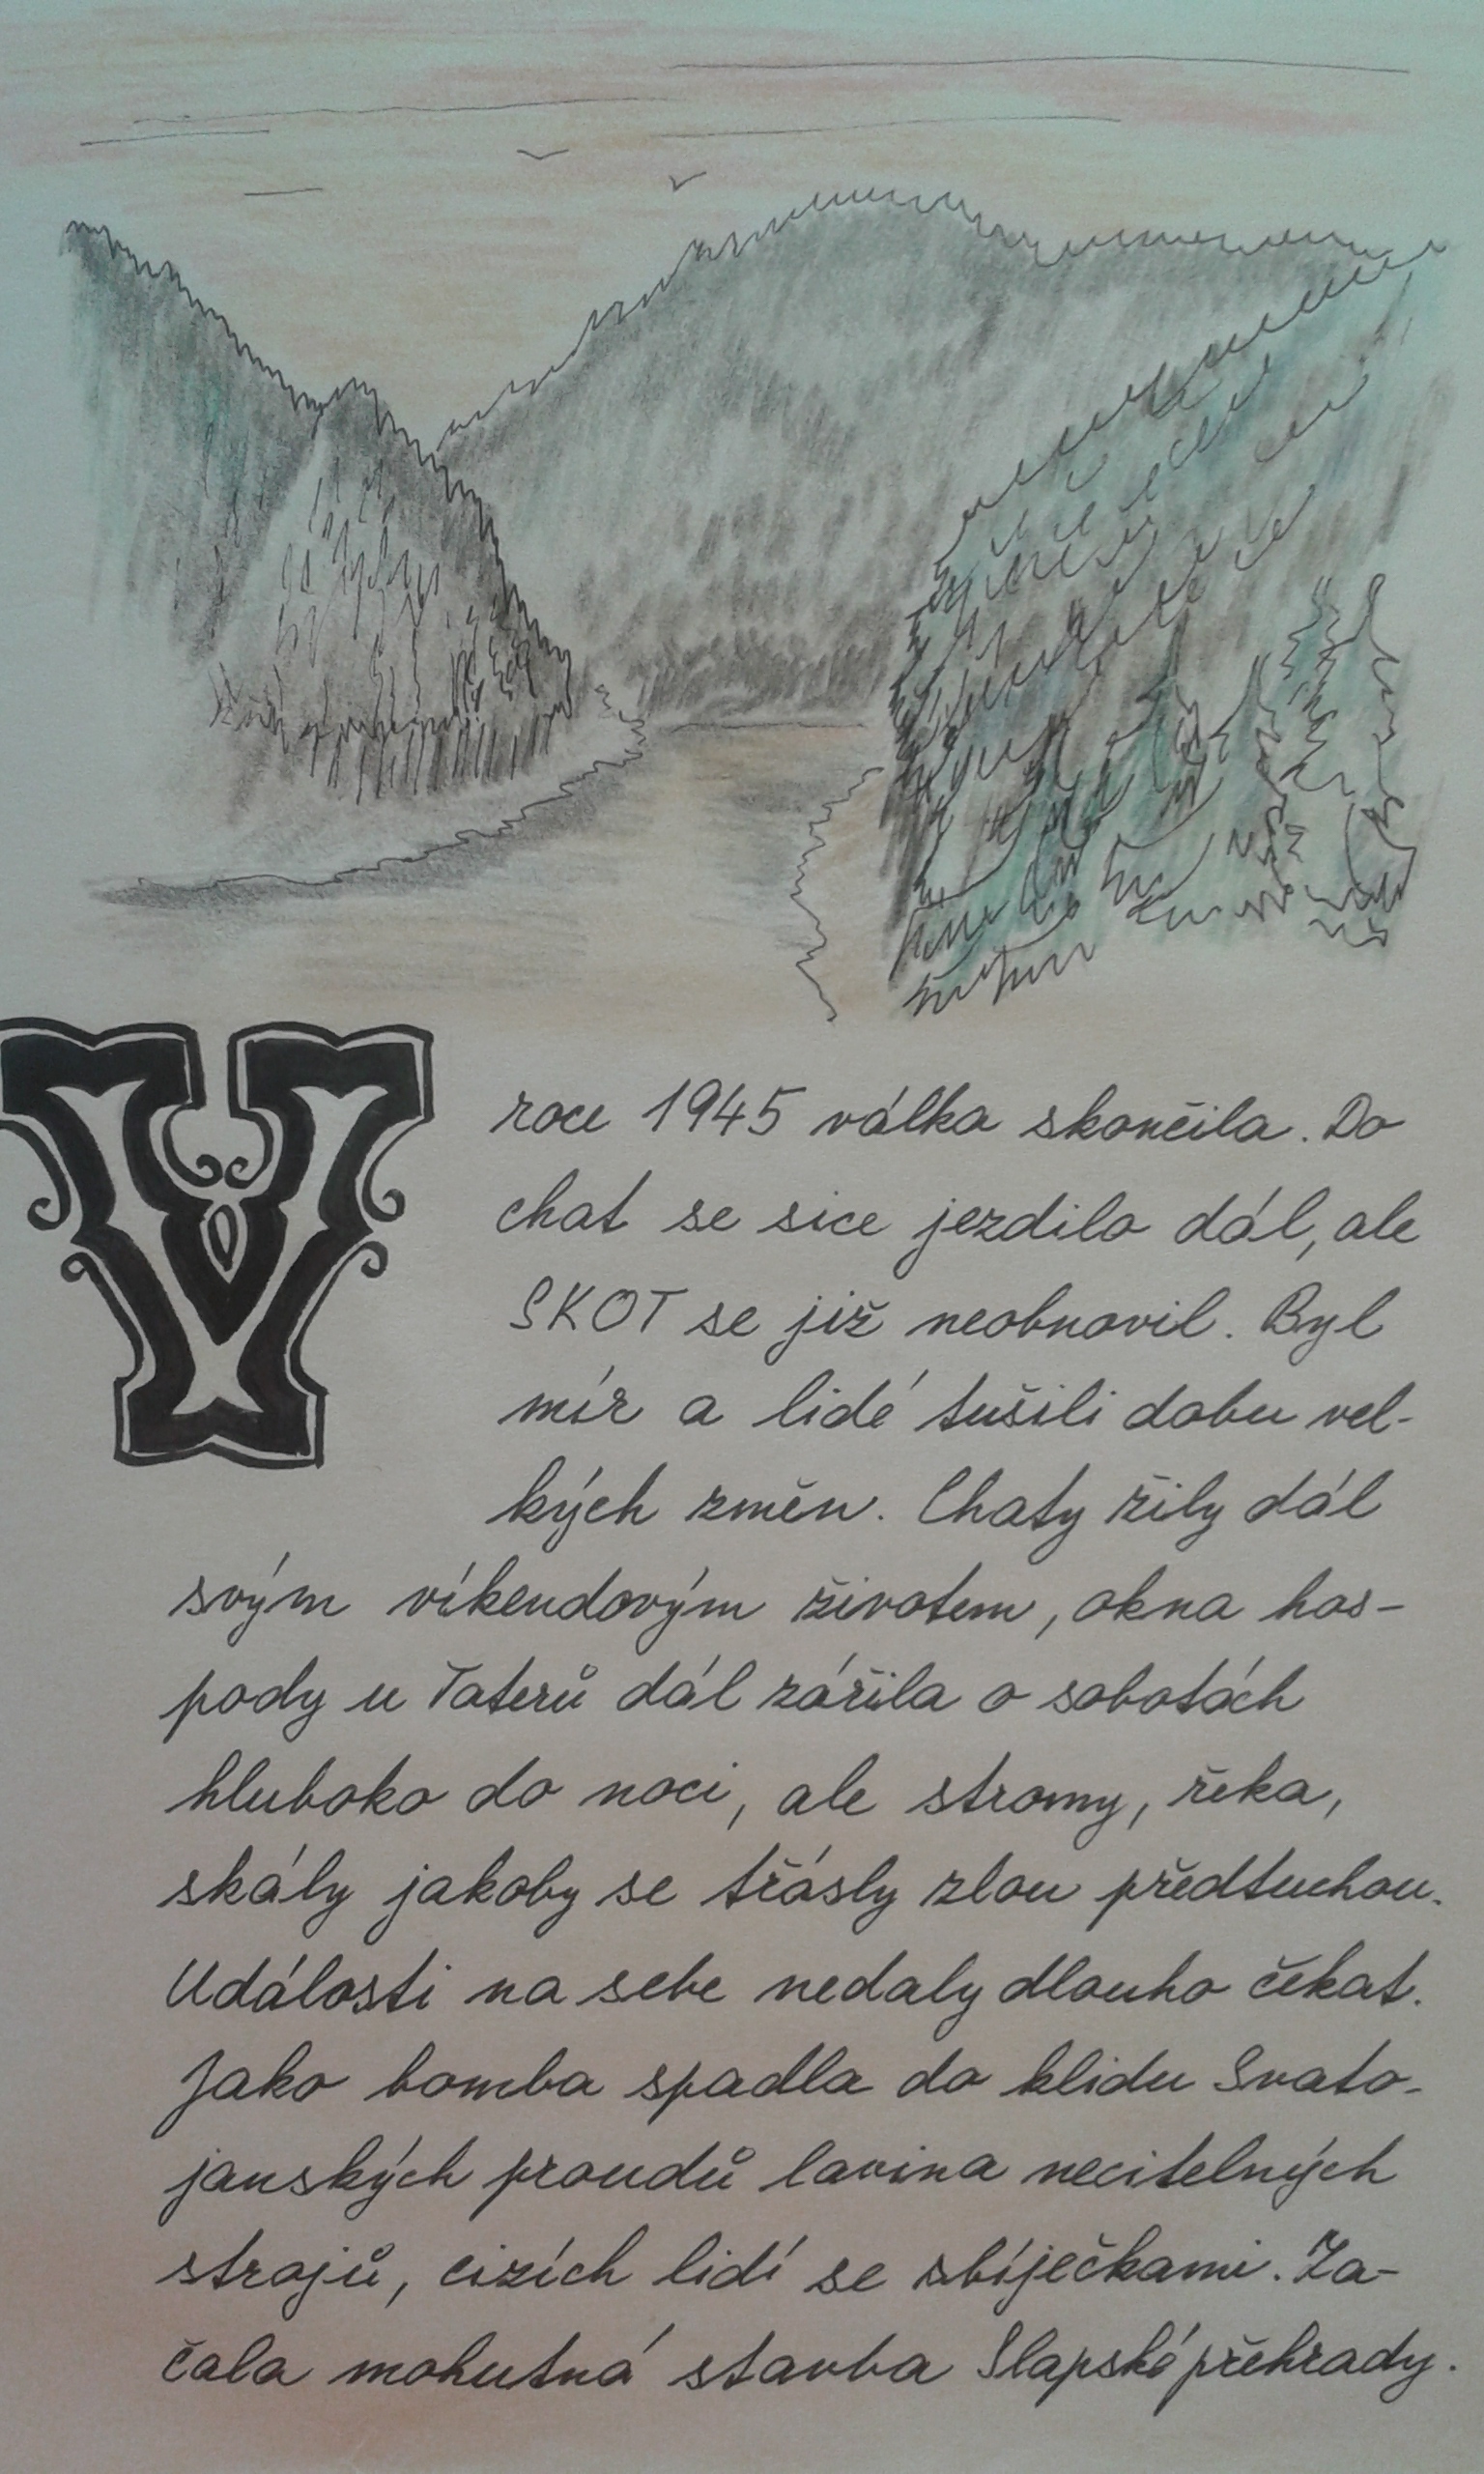 V roce 1945 válka skončila. Do
chat se sice jezdilo dál, ale
SKOT se již neobnovil. Byl
mír a lidé tušili dobu vel-
kých změn. Chaty žily dál
svým víkendovým životem, okna hos-
pody u Taterů dál zářila o sobotách
hluboko do noci, ale stromy, řeka,
skály jakoby se třásly zlou předtuchou.
Události na sebe nedaly dlouho čekat.
Jako bomba spadla do klidu Svato-
janských proudů lavina necitelných
strojů, cizích lidí se sbíječkami. Za-
čala mohutná stavba Slapské přehrady.